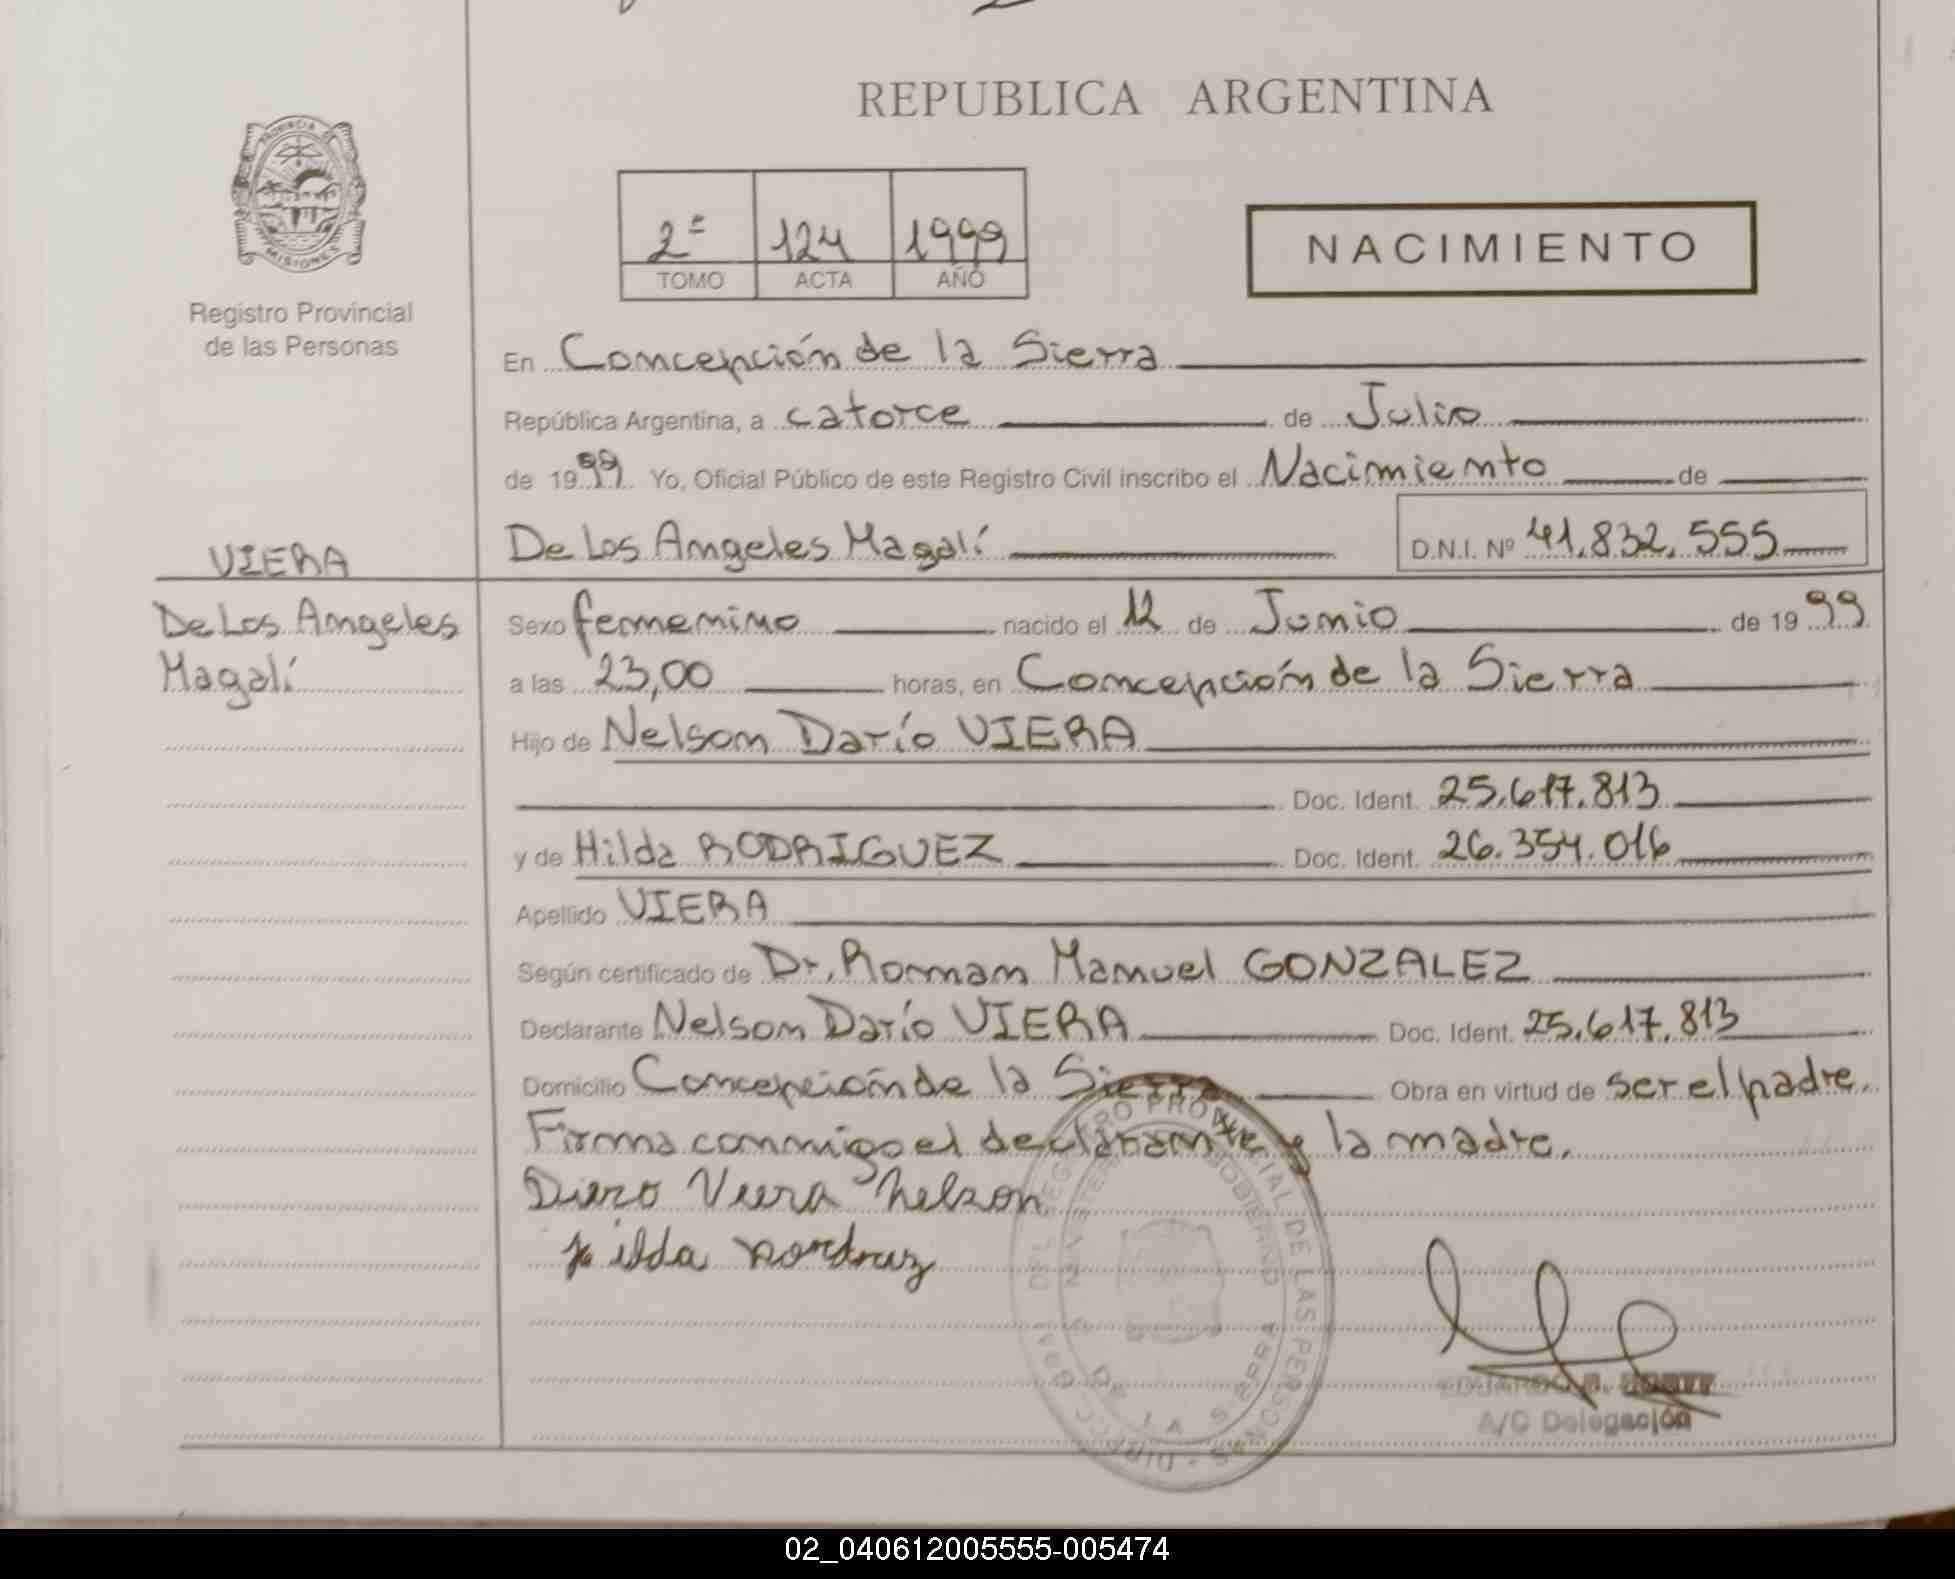 REPUBLICA ARGENTINA
PROVINCIA DE
MISIONES
Registro Provincial
de las Personas
2ª 124 1999
TOMO ACTA AÑO
NACIMIENTO
En Concepción de la Sierra
República Argentina, a catorce de Julio
de 1999 Yo, Oficial Público de este Registro Civil inscribo el Nacimiento de
De Los Angeles Magalí D.N.I. Nº 41.832.555
VIERA
De Los Angeles
Magalí
Sexo femenino nacido el 12 de Junio de 1999
a las 23,00 horas, en Concepción de la Sierra
Hijo de Nelson Darío VIERA
Doc. Ident. 25.617.813
y de Hilda RODRIGUEZ Doc. Ident. 26.354.016
Apellido VIERA
Según certificado de Dr. Roman Manuel GONZALEZ
Declarante Nelson Darío VIERA Doc. Ident. 25.617.813
Domicilio Concepción de la Sierra Obra en virtud de ser el padre.
Firma conmigo el declarante y la madre.
Viera Nelson
ilda
DE LA SIERRA
A/C Delegación
02_040612005555-005474